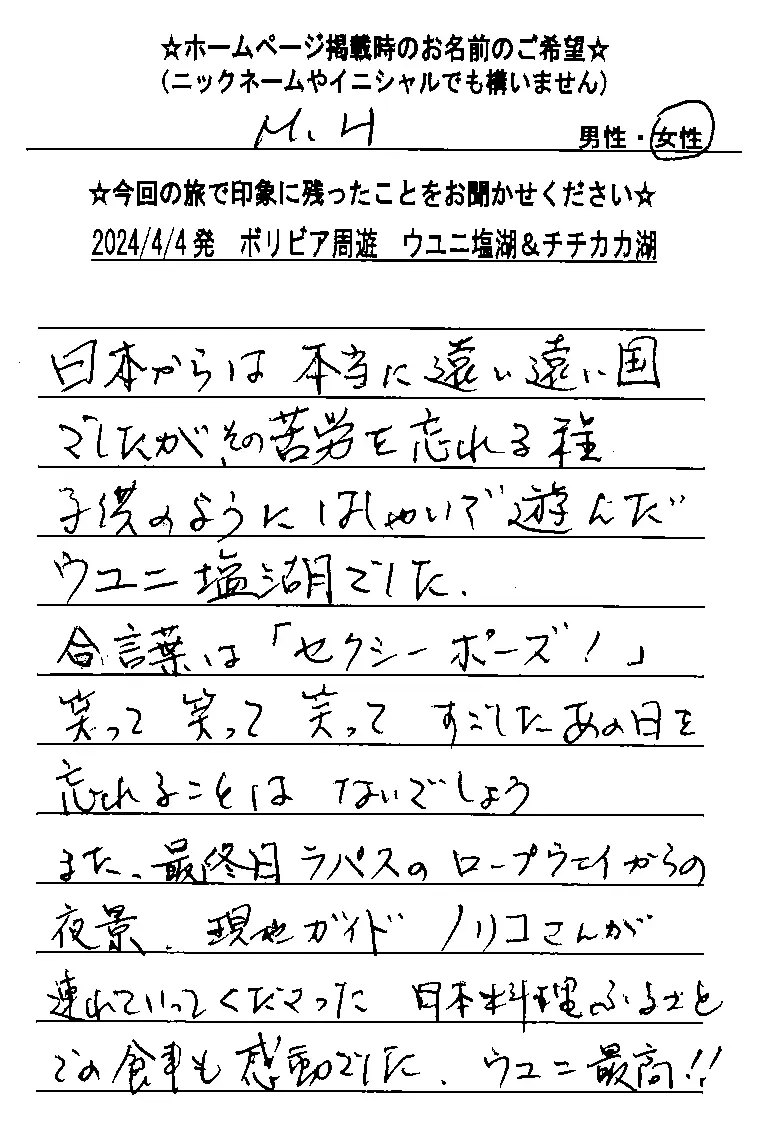 ☆ホームページ掲載時のお名前のご希望☆
(ニックネームやイニシャルでも構いません)
M.H 男性・女性
☆今回の旅で印象に残ったことをお聞かせください☆
2024/4/4発 ボリビア周遊 ウユニ塩湖&チチカカ湖
日本からは 本当に遠い遠い国
でしたが、その苦労を忘れる程
子供のようにはしゃいで遊んだ
ウユニ塩湖でした.
合言葉は「セクシーポーズ!」
笑って 笑って 笑って すごしたあの日を
忘れることは ないでしょう
また、最終日ラパスのロープウェイからの
夜景、現地ガイド ノリコさんが
連れていってくださった 日本料理ふるさと
での食事も感動でした. ウユニ最高!!